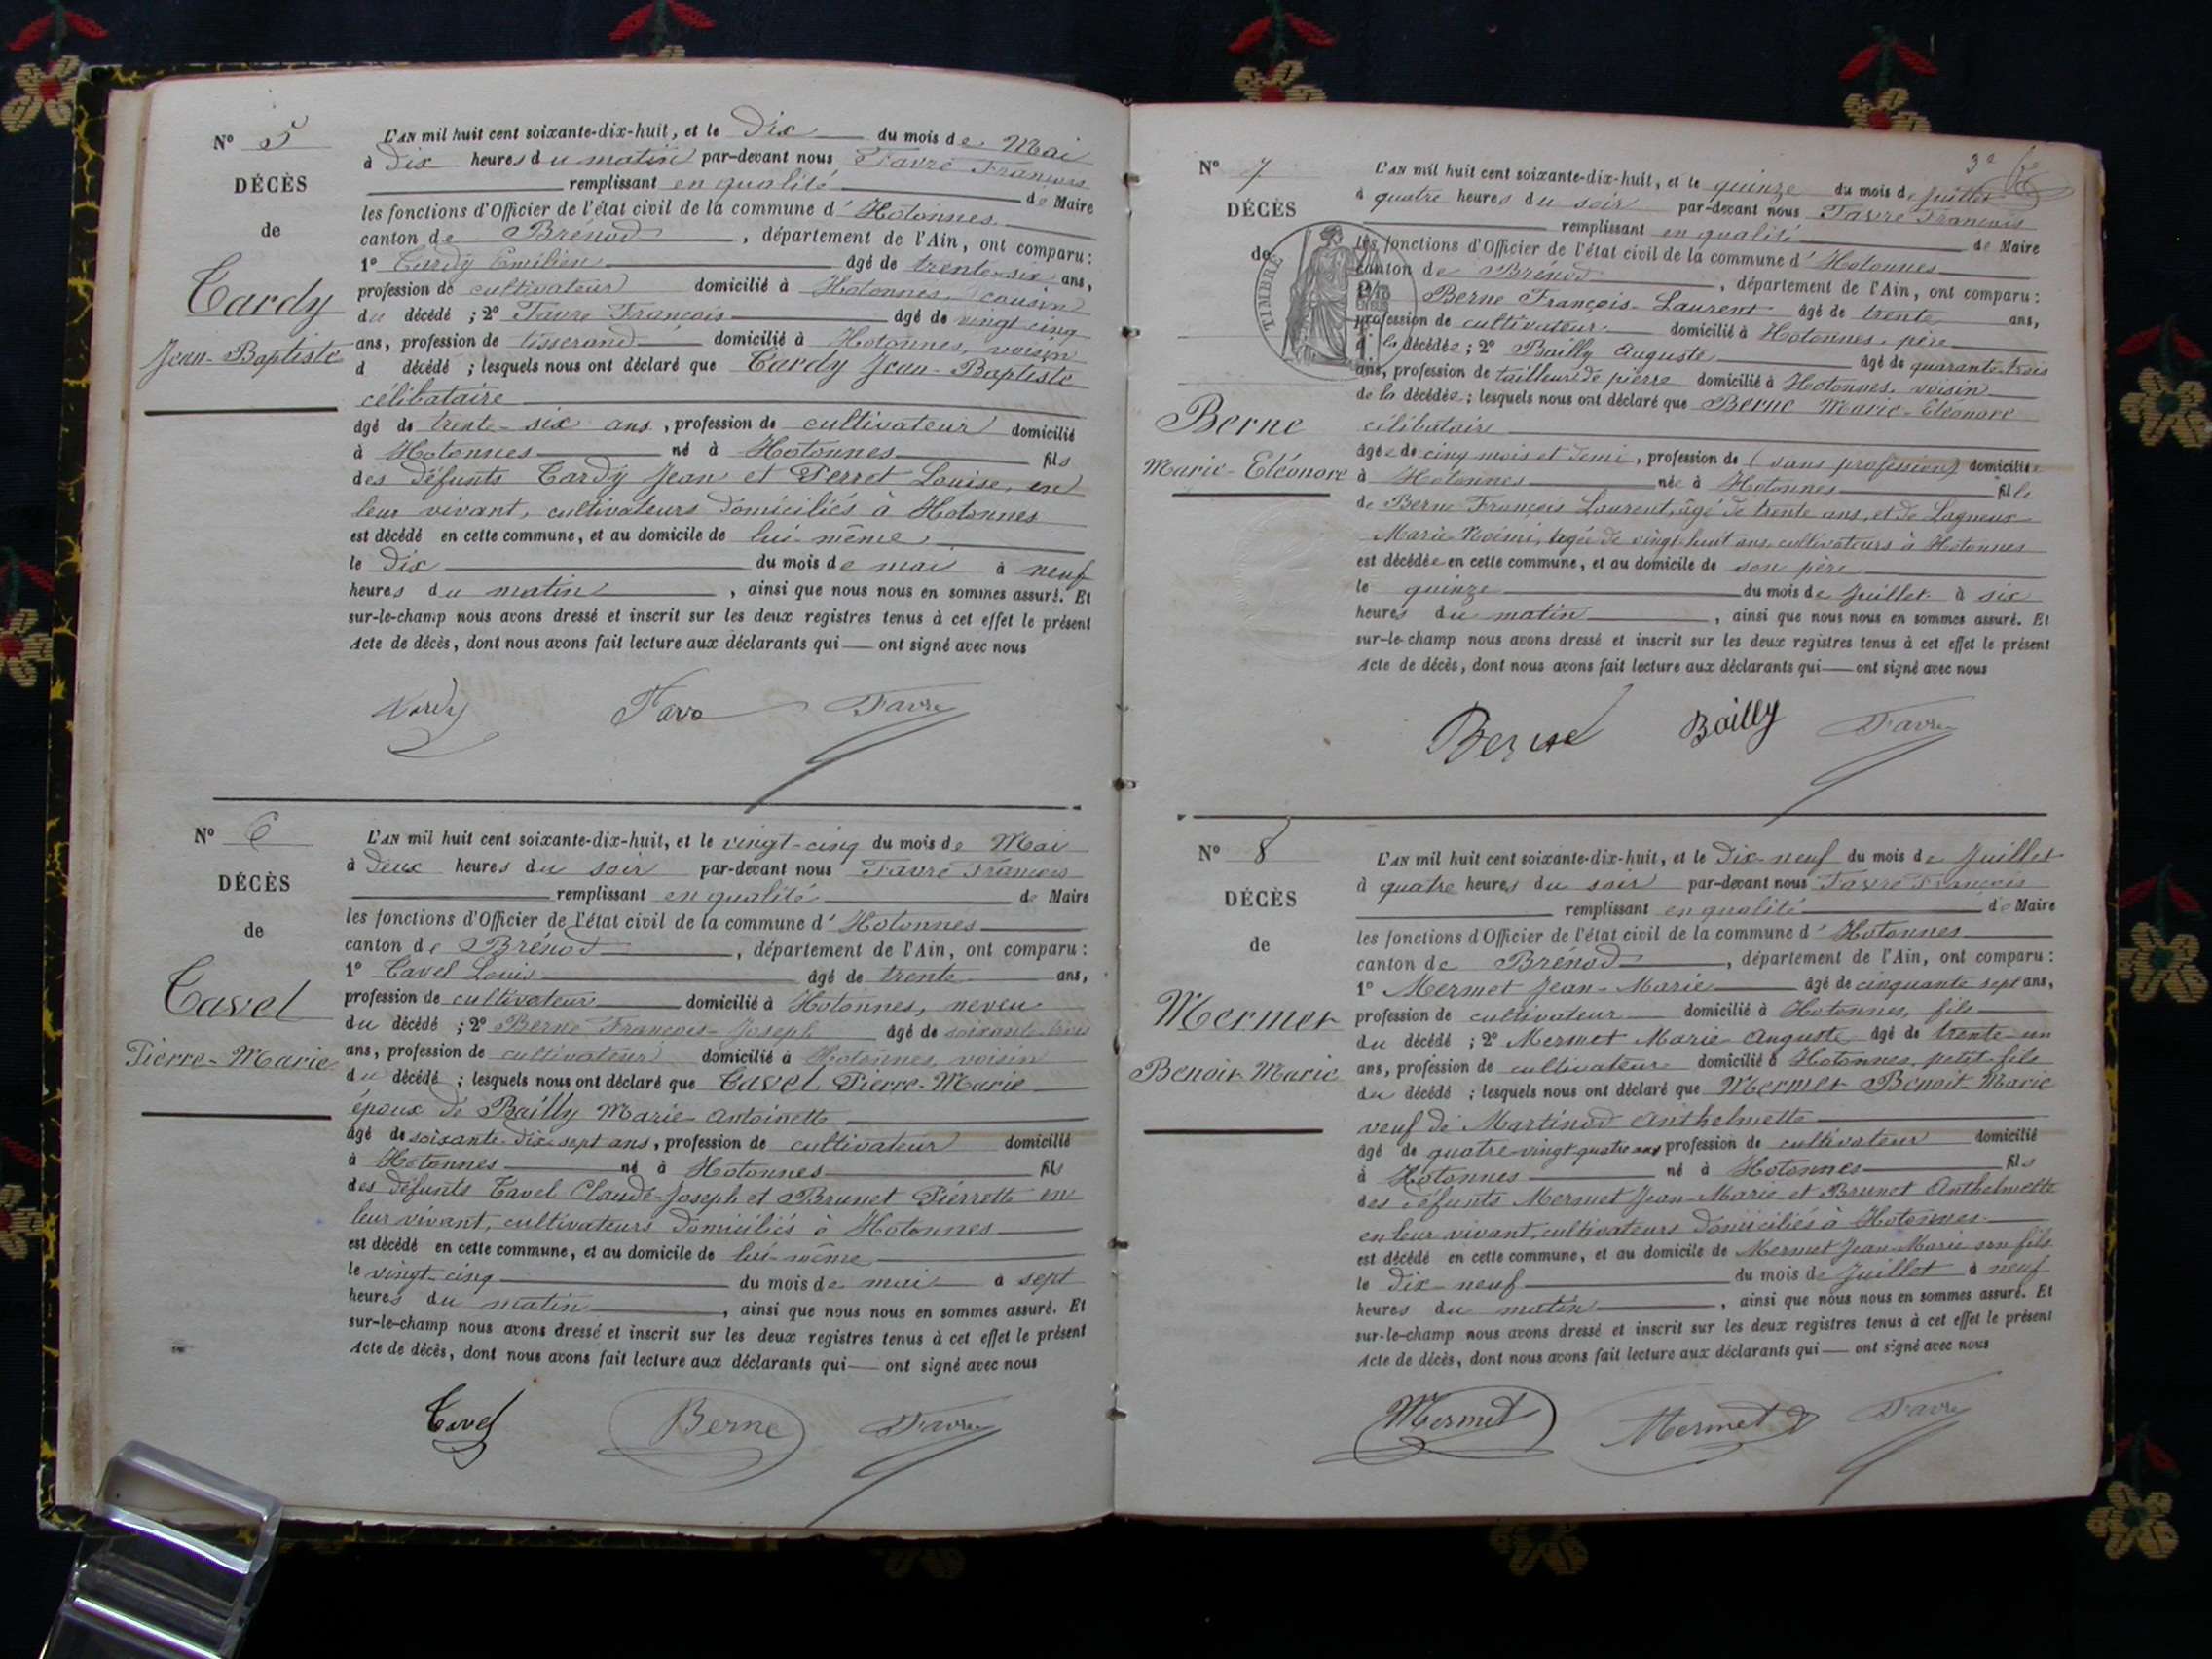 N° 5
DÉCÈS
de
Tardy
Jean-Baptiste
L'AN mil huit cent soixante-dix-huit, et le Dix du mois de Mai
à Dix heures du matin par-devant nous Favre François
remplissant en qualité de Maire
les fonctions d'Officier de l'état civil de la commune d'Hotonnes
canton de Brénod, département de l'Ain, ont comparu :
1° Tardy Emilien âgé de trente-six ans,
profession de cultivateur domicilié à Hotonnes, cousin
du décédé ; 2° Favre François âgé de vingt cinq
ans, profession de tisserand domicilié à Hotonnes, voisin
d décédé ; lesquels nous ont déclaré que Tardy Jean-Baptiste
célibataire
âgé de trente-six ans, profession de cultivateur domicilié
à Hotonnes né à Hotonnes fils
des défunts Tardy Jean et Perret Louise, en
leur vivant, cultivateurs domiciliés à Hotonnes
est décédé en cette commune, et au domicile de lui-même,
le Dix du mois de mai à neuf
heures du matin, ainsi que nous nous en sommes assuré. Et
sur-le-champ nous avons dressé et inscrit sur les deux registres tenus à cet effet le présent
Acte de décès, dont nous avons fait lecture aux déclarants qui — ont signé avec nous
Tardy Favre Favre
N° 6
DÉCÈS
de
Tavel
Pierre-Marie
L'AN mil huit cent soixante-dix-huit, et le vingt-cinq du mois de Mai
à Deux heures du soir par-devant nous Favre François
remplissant en qualité de Maire
les fonctions d'Officier de l'état civil de la commune d'Hotonnes
canton de Brénod, département de l'Ain, ont comparu :
1° Tavel Louis âgé de trente ans,
profession de cultivateur domicilié à Hotonnes, neveu
du décédé ; 2° Berne François-Joseph âgé de soixante-trois
ans, profession de cultivateur domicilié à Hotonnes, voisin
du décédé ; lesquels nous ont déclaré que Tavel Pierre-Marie
époux de Bailly Marie Antoinette
âgé de soixante-dix-sept ans, profession de cultivateur domicilié
à Hotonnes né à Hotonnes fils
des défunts Tavel Claude-Joseph et Brunet Pierrette en
leur vivant, cultivateurs domiciliés à Hotonnes
est décédé en cette commune, et au domicile de lui-même
le vingt-cinq du mois de mai à sept
heures du matin, ainsi que nous nous en sommes assuré. Et
sur-le-champ nous avons dressé et inscrit sur les deux registres tenus à cet effet le présent
Acte de décès, dont nous avons fait lecture aux déclarants qui — ont signé avec nous
Tavel Berne Favre
3e
N° 7
DÉCÈS
de
TIMBRE
Berne
Marie-Eléonore
L'AN mil huit cent soixante-dix-huit, et le quinze du mois de Juillet
à quatre heures du soir par-devant nous Favre François
remplissant en qualité de Maire
les fonctions d'Officier de l'état civil de la commune d'Hotonnes
canton de Brénod, département de l'Ain, ont comparu :
Berne François-Laurent âgé de trente ans,
profession de cultivateur domicilié à Hotonnes, père
de la décédée ; 2° Bailly Auguste âgé de quarante-trois
ans, profession de tailleur de pierre domicilié à Hotonnes, voisin
de la décédée ; lesquels nous ont déclaré que Berne Marie-Eléonore
célibataire
âgée de cinq mois et demi, profession de (sans profession) domiciliée
à Hotonnes née à Hotonnes fille
de Berne François Laurent, âgé de trente ans, et de Lagneux
Marie Noémi, âgée de vingt-huit ans, cultivateurs à Hotonnes
est décédée en cette commune, et au domicile de son père
le quinze du mois de Juillet à six
heures du matin, ainsi que nous nous en sommes assuré. Et
sur-le-champ nous avons dressé et inscrit sur les deux registres tenus à cet effet le présent
Acte de décès, dont nous avons fait lecture aux déclarants qui — ont signé avec nous
Berne Bailly Favre
N° 8
DÉCÈS
de
Mermet
Benoit-Marie
L'AN mil huit cent soixante-dix-huit, et le Dix-neuf du mois de Juillet
à quatre heures du soir par-devant nous Favre François
remplissant en qualité de Maire
les fonctions d'Officier de l'état civil de la commune d'Hotonnes
canton de Brénod, département de l'Ain, ont comparu :
1° Mermet Jean-Marie âgé de cinquante sept ans,
profession de cultivateur domicilié à Hotonnes, fils
du décédé ; 2° Mermet Marie Auguste âgé de trente-un
ans, profession de cultivateur domicilié à Hotonnes, petit-fils
du décédé ; lesquels nous ont déclaré que Mermet Benoit Marie
veuf de Martinod Anthelmette
âgé de quatre-vingt-quatre ans profession de cultivateur domicilié
à Hotonnes né à Hotonnes fils
des défunts Mermet Jean-Marie et Brunet Anthelmette
en leur vivant, cultivateurs domiciliés à Hotonnes
est décédé en cette commune, et au domicile de Mermet Jean-Marie son fils
le Dix-neuf du mois de Juillet à neuf
heures du matin, ainsi que nous nous en sommes assuré. Et
sur-le-champ nous avons dressé et inscrit sur les deux registres tenus à cet effet le présent
Acte de décès, dont nous avons fait lecture aux déclarants qui — ont signé avec nous
Mermet Mermet Favre